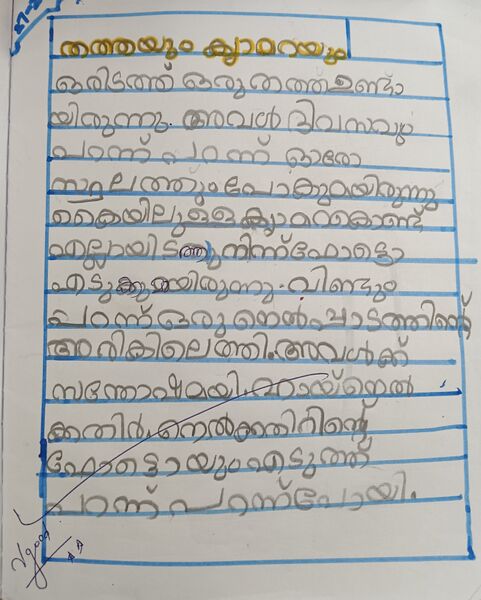 തത്തയും ക്യാമറയും
ഒരിടത്ത് ഒരു തത്ത ഉണ്ടാ
യിരുന്നു. അവൾ ദിവസവും
പറന്ന് പറന്ന് ഓരോ
സ്ഥലത്തും പോകുമായിരുന്നു
കൈയിലുള്ള ക്യാമറകൊണ്ട്
എല്ലായിടത്തുനിന്ന് ഫോട്ടൊ
എടുക്കുമയിരുന്നു. വിണ്ടും
പറന്ന് ഒരു നെൽപ്പാടത്തിൻ്റെ
അരികിലെത്തി. അവൾക്ക്
സന്തോഷമയി. ഹായ് നെൽ
ക്കതിർ. നെൽക്കതിറിൻ്റെ
ഫോട്ടൊയും എടുത്ത്
പറന്ന് പറന്ന് പോയി.
V good